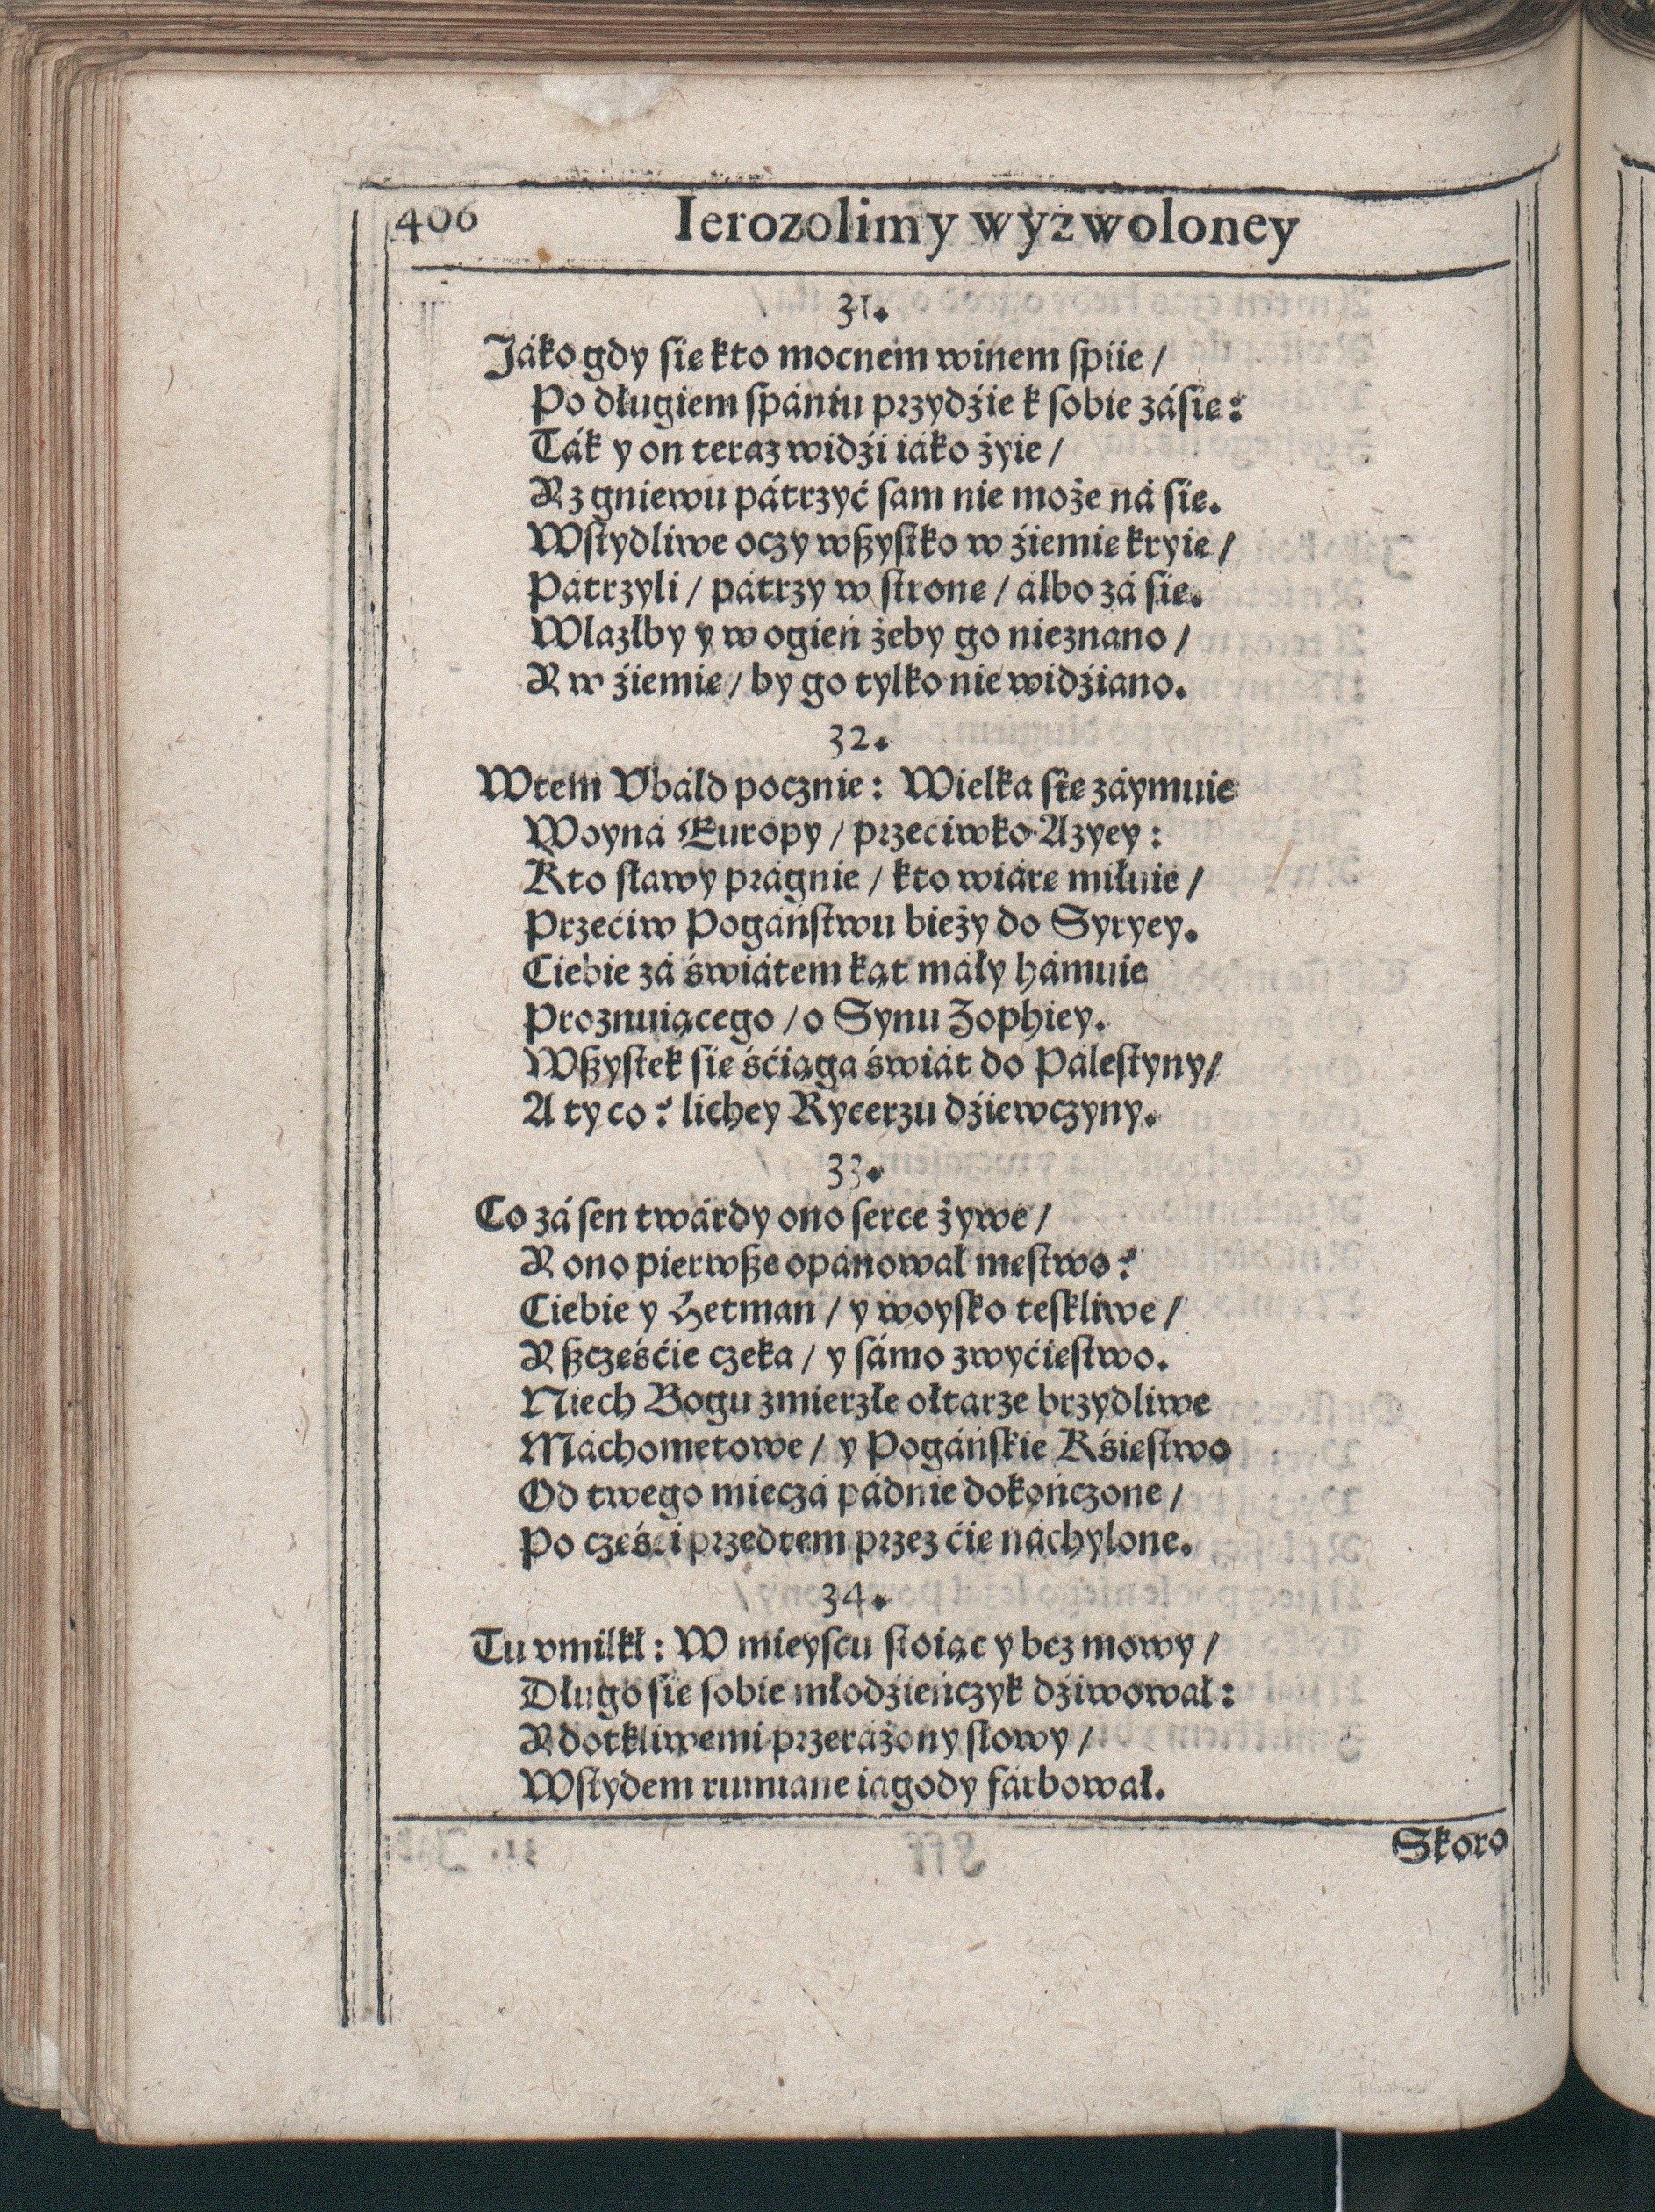 406 Ierozolimy wyzwoloney
31.
Jáko gdy się kto mocnem winem spiie /
Po długiem spániu przydźie k sobie záśię:
Ták y on teraz widźi iáko żyie /
Y z gniewu pátrzyć sam nie może ná się.
Wstydliwe oczy wszystko w źiemię kryie /
Pátrzyli / pátrzy w stronę / álbo zá się.
Wlazłby y w ogień żeby go nieznano /
Y w źiemię / by go tylko nie widźiano.
32.
Wtem Vbáld pocznie: Wielka się záymuie
Woyná Europy / przeciwko Azyey:
Kto sławy prágnie / kto wiárę miłuie /
Przećiw Pogáństwu bieży do Syryey.
Ciebie zá świátem kąt máły hámuie
Proznuiącego / o Synu Zophiey.
Wszystek się śćiąga świát do Pálestyny /
A ty co? lichey Rycerzu dźiewczyny.
33.
Co zá sen twárdy ono serce żywe /
Y ono pierwsze opánował męstwo?
Ciebie y Hetman / y woysko teskliwe /
Y szczęśćie czeka / y sámo zwyćięstwo.
Niech Bogu zmierzłe ołtarze brzydliwe
Máchometowe / y Pogáńskie Kśięstwo
Od twego mieczá pádnie dokończone /
Po częśći przedtem przez ćię náchylone.
34.
Tu vmilkł: W mieyscu stoiąc y bez mowy /
Długo się sobie młodźieńczyk dźiwował:
Y dotkliwemi przeráżony słowy /
Wstydem rumiane iagody fárbował.
Skoro